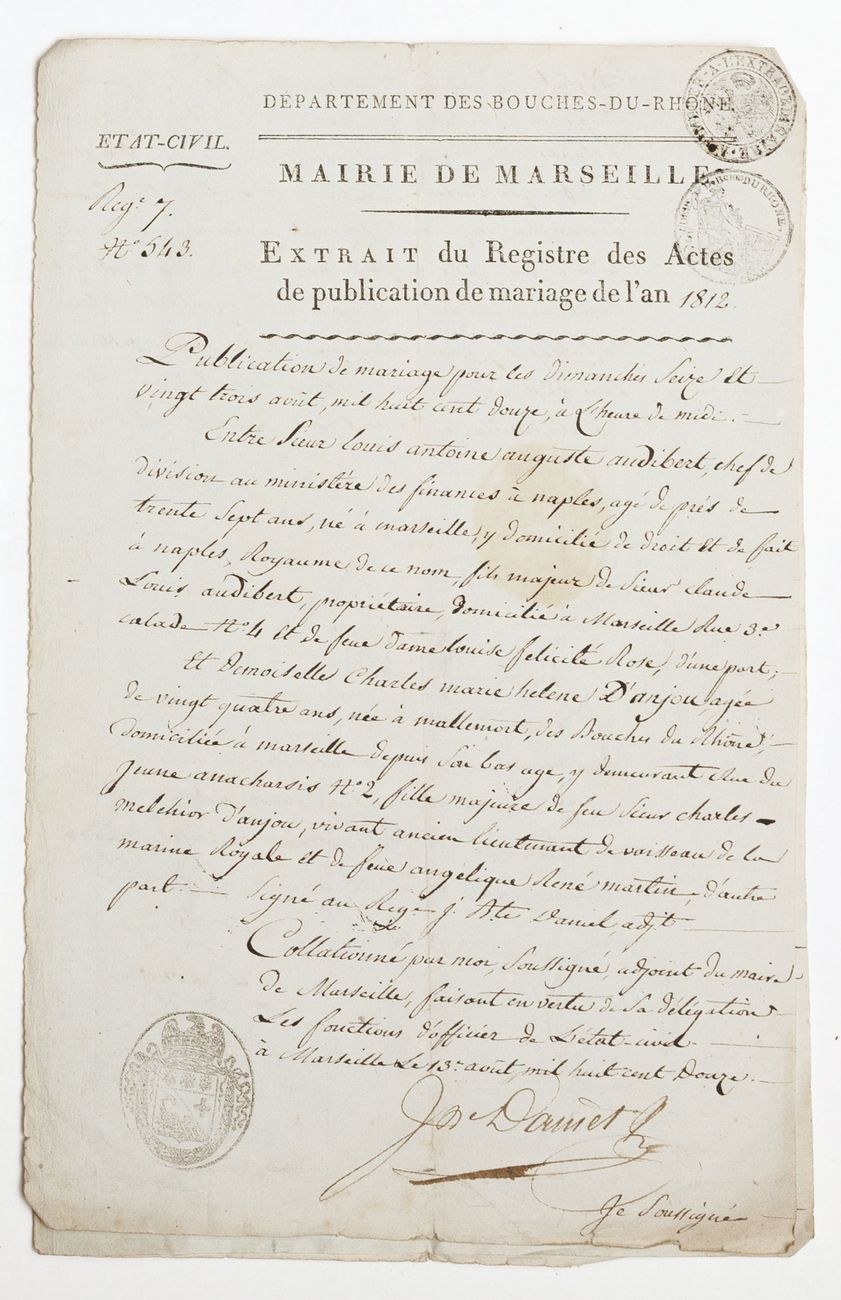 DÉPARTEMENT DES BOUCHES-DU-RHÔNE
ETAT-CIVIL.
MAIRIE DE MARSEILLE
Reg.e 7.
N.o 543.
EXTRAIT du Registre des Actes
de publication de mariage de l'an 1812.
Publication de mariage pour les dimanches Seize Et
vingt trois août, mil huit cent douze, à L'heure de midi.
Entre Sieur louis antoine auguste audibert, chef de
division au ministére des finances à naples, agé de prés de
trente Sept ans, né à marseille, y domicilié de droit Et de fait
à naples, Royaume de ce nom, fils majeur de Sieur claude
Louis audibert, propriétaire, domicilié à Marseille Rue 3.e
calade N.o 4 Et de feue dame louise felicité Rose, d'une part;
Et Demoiselle Charles marie helene D'anjou, agée
de vingt quatre ans, née à mallemort, des Bouches du Rhône,
domiciliée à marseille depuis Son bas age, y demeurant Rue du
Jeune anacharsis N.o 2, fille majeure de feu Sieur charles
melchior D'anjou, vivant ancien lieutenant de vaisseau de la
marine Royale Et de feue angélique René martin, d'autre
part. Signé au Reg.e J. B.te Daniel, adj.t
Collationné par moi, Soussigné, adjoint du maire
De Marseille, faisant en vertu de Sa délégation
Les fonctions d'officier de L'état-civil.
à Marseille Le 13.e août, mil huit cent Douze.
Je Soussigné